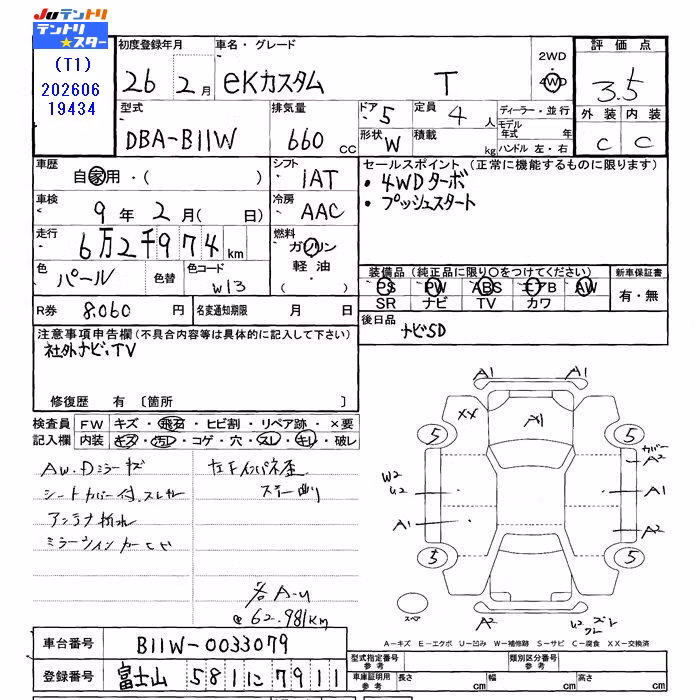 JUテントリ
テントリ
★スター
(T1)
202606
19434
初度登録年月
26 2月
車名・グレード
eKカスタム T
2WD
・
4WD
評価点
3.5
外装 内装
C C
型式
DBA-B11W
排気量
660 cc
ドア 5
定員 4 人
形状 W
積載 kg
ディーラー・並行
モデル
年式 年
ハンドル 左・右
車歴
自家用・( )
シフト
IAT
車検
9年 2月( 日)
冷房
AAC
走行
6万2千974km
燃料
ガソリン
軽油
・
色
パール
色替
色コード
W13
R券 8,060 円
名変通知期限 月 日
セールスポイント(正常に機能するものに限ります)
・4WDターボ
・プッシュスタート
装備品(純正品に限り○をつけてください)
PS PW ABS エアB AW
SR ナビ TV カワ
新車保証書
有・無
後日品
ナビSD
注意事項申告欄(不具合内容等は具体的に記入して下さい)
社外ナビ,TV
修復歴 有〔箇所 〕
検査員
記入欄
FW キズ・飛石・ヒビ割・リペア跡・×要
内装 キズ・汚レ・コゲ・穴・スレ・キレ・破レ
AW.Dミラーキズ
シートカバー付.スレキレ
アンテナ折れ
ミラーウィンカーヒビ
左Fインパネ歪
ステー曲り
各A-U
@62.981km
A1
A1
XX
A1
5
5
カバー
A2
W2
U2
A1
A1
A2
5
5
スペア
A2
U2
A-キズ E-エクボ U-凹み W-補修跡 S-サビ C-腐食 XX-交換済
車台番号 B11W-0033079
登録番号 富士山 581に7911
型式指定番号
参考
類別区分番号
参考
車庫証明用
参考
長さ cm
幅 cm
高さ cm